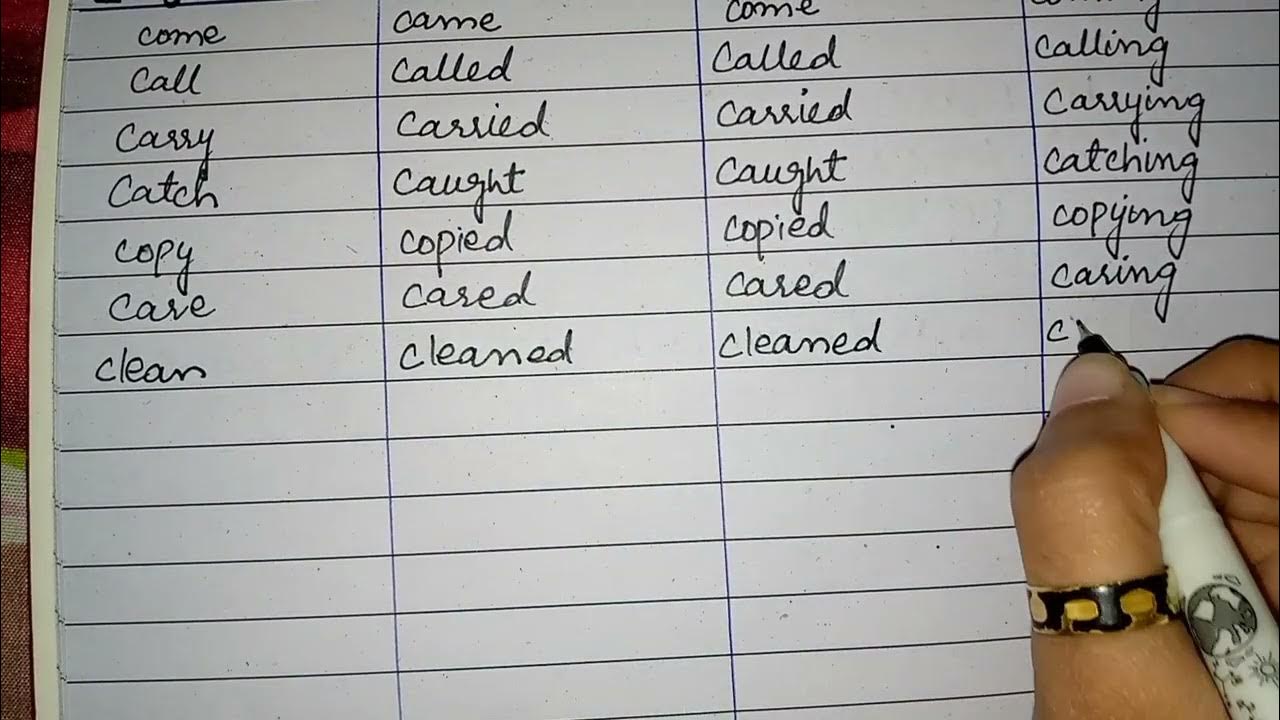 come came come
Call Called Called Calling
Carry Carried Carried Carrying
Catch Caught Caught Catching
copy copied copied copying
Care Cared Cared Caring
clean cleaned cleaned c